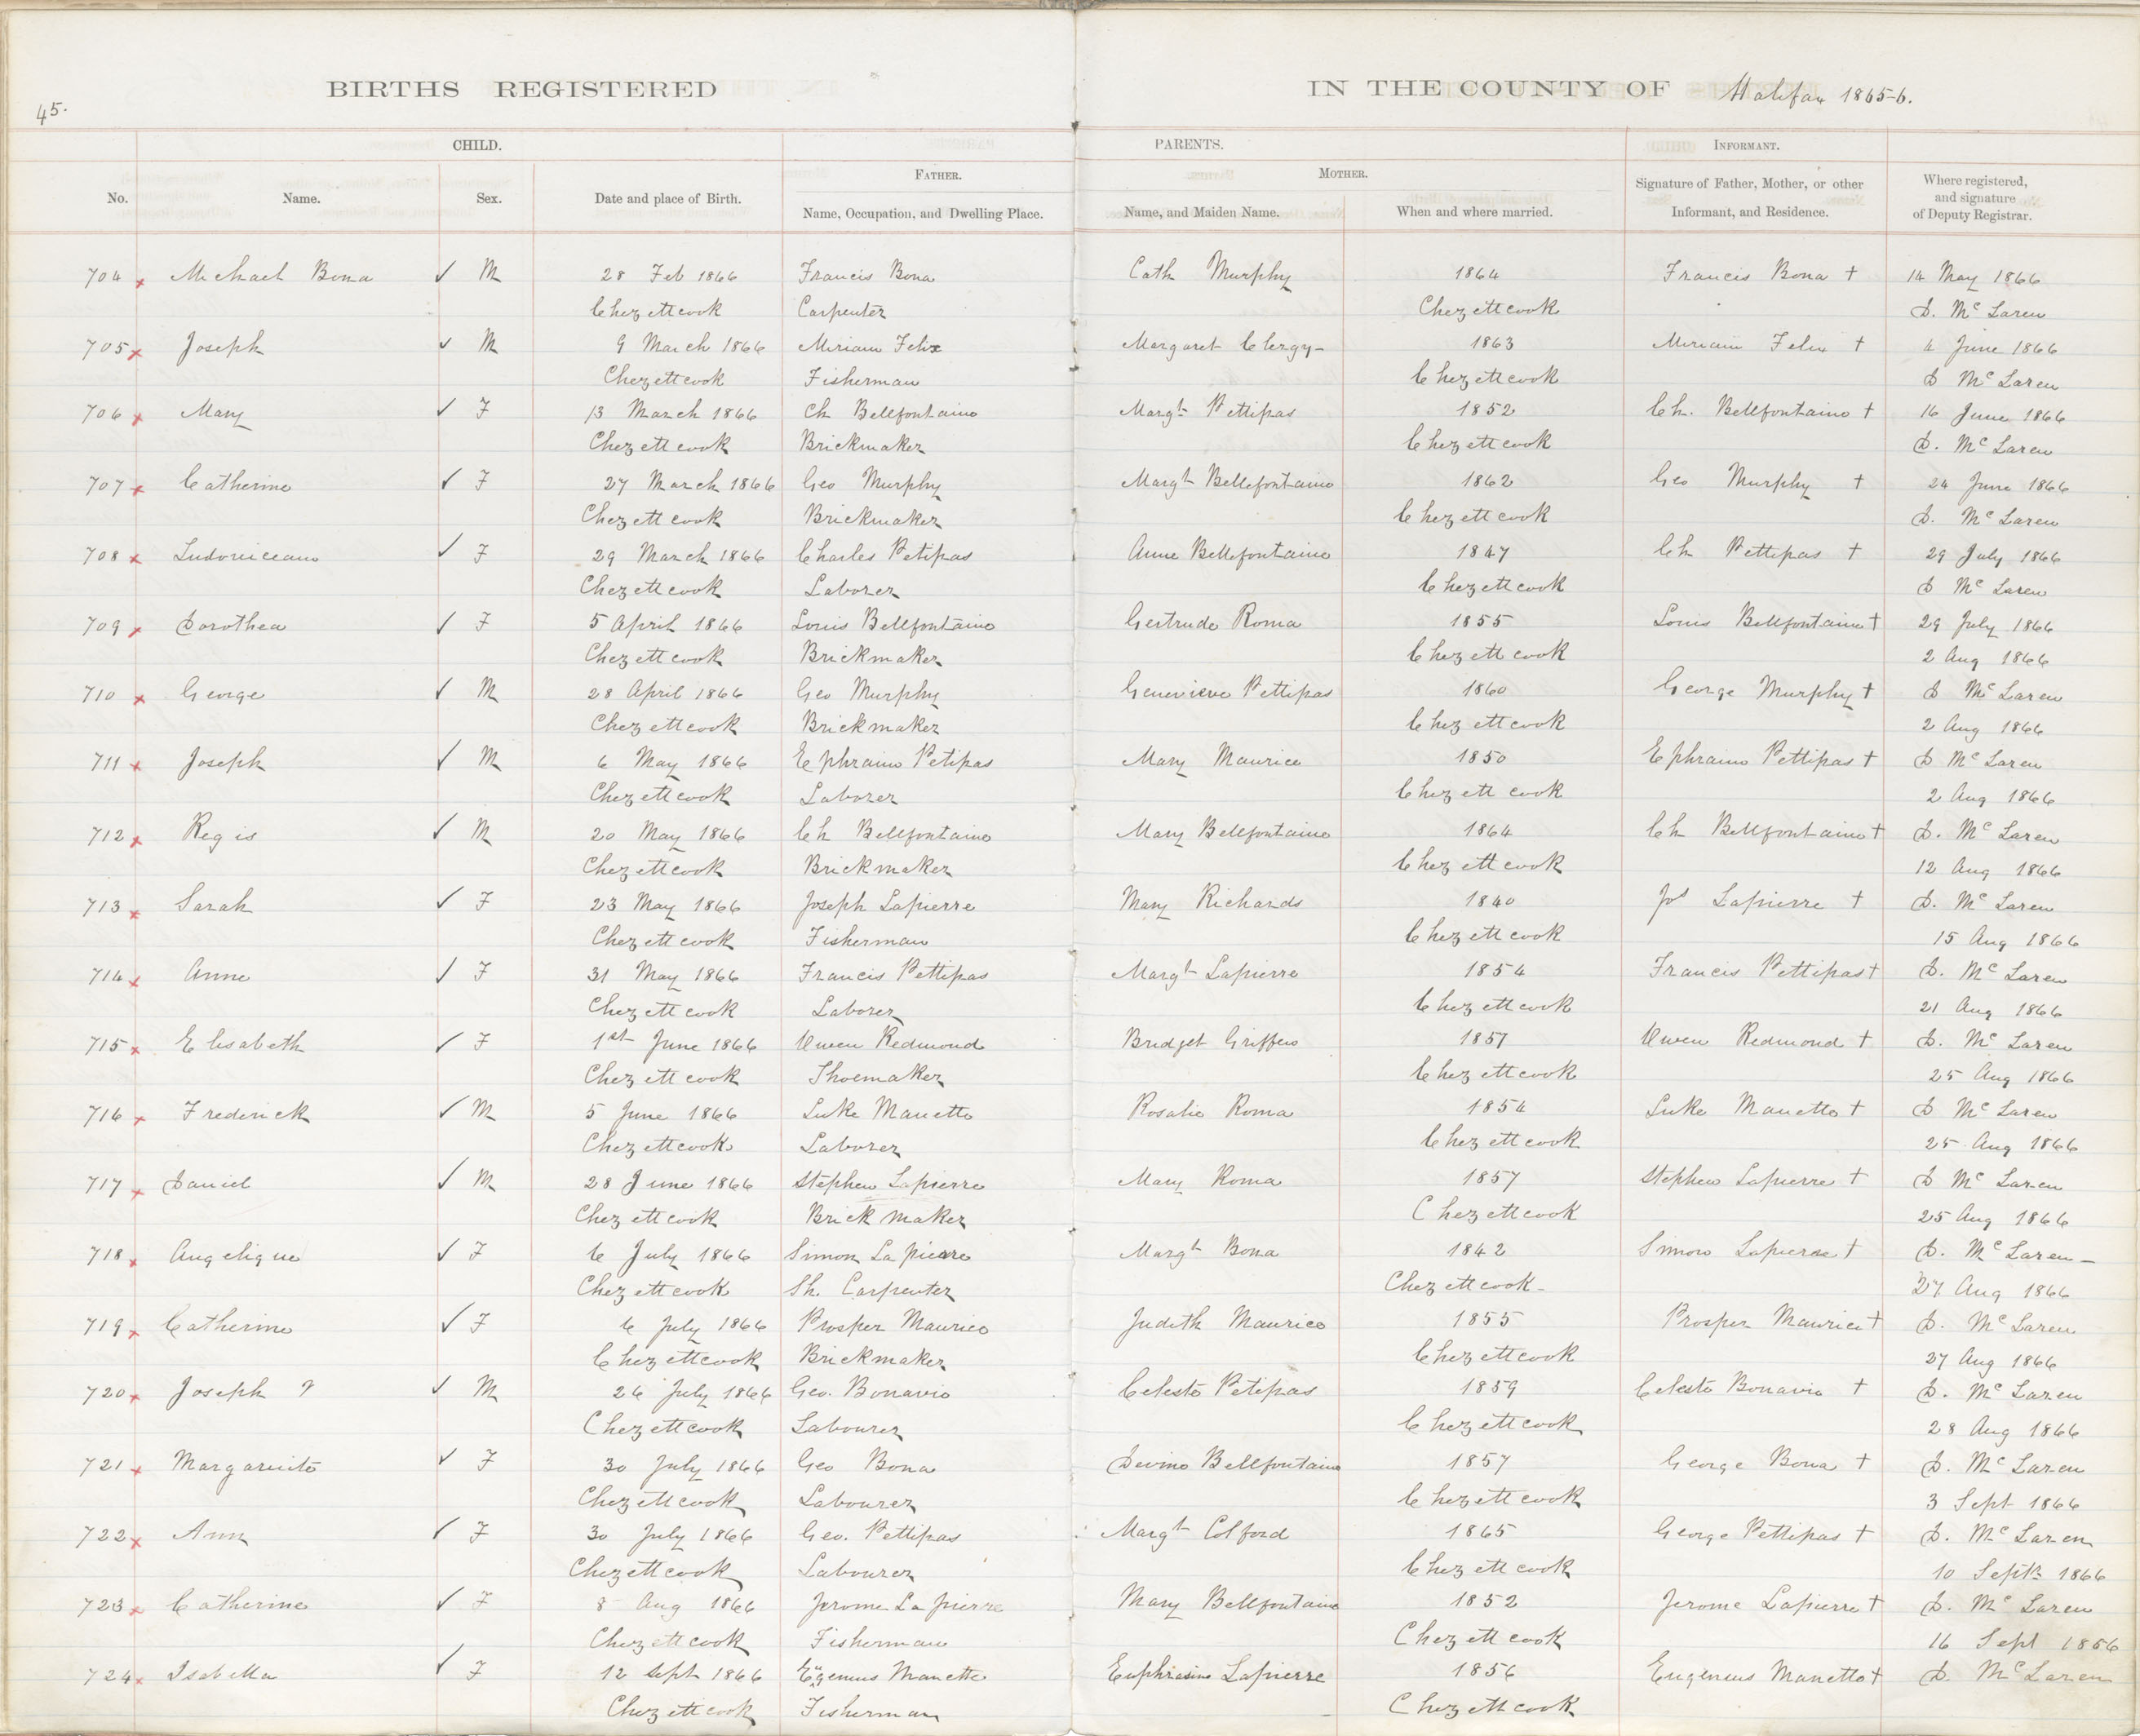 BIRTHS REGISTERED IN THE COUNTY OF Halifax 1865-6.
45.
CHILD. PARENTS. INFORMANT.
FATHER. MOTHER.
No. Name. Sex. Date and place of Birth. Name, Occupation, and Dwelling Place. Name, and Maiden Name. When and where married. Signature of Father, Mother, or other Informant, and Residence. Where registered, and signature of Deputy Registrar.
704 x Michael Bona ✓ M 28 Feb 1866 Francis Bona Cath Murphy 1864 Francis Bona + 14 May 1866
Chezettcook Carpenter Chezettcook D. McLaren
705 x Joseph ✓ M 9 March 1866 Miriam Felix Margaret Clergy- 1863 Miriam Felix + 4 June 1866
Chezettcook Fisherman Chezettcook D McLaren
706 x Mary ✓ F 13 March 1866 Ch Bellfontaine Margt Pettipas 1852 Ch. Bellfontaine + 16 June 1866
Chezettcook Brickmaker Chezettcook D. McLaren
707 x Catherine ✓ F 27 March 1866 Geo Murphy Margt Bellefontaine 1862 Geo Murphy + 24 June 1866
Chezettcook Brickmaker Chezettcook D. McLaren
708 x ✓ F 29 March 1866 Charles Petipas Anne Bellefontaine 1847 Ch Pettipas + 29 July 1866
Chezettcook Laborer Chezettcook D McLaren
709 x Dorothea ✓ F 5 April 1866 Louis Bellfontaine Gertrude Roma 1855 Louis Bellfontaine + 29 July 1866
Chezettcook Brickmaker Chezettcook 2 Aug 1866
710 x George ✓ M 28 April 1866 Geo Murphy Genevieve Pettipas 1860 George Murphy + D McLaren
Chezettcook Brickmaker Chezettcook 2 Aug 1866
711 x Joseph ✓ M 6 May 1866 Ephraim Petipas Mary Maurice 1850 Ephraim Pettipas + D McLaren
Chezettcook Laborer Chezettcook 2 Aug 1866
712 x Regis ✓ M 20 May 1866 Ch Bellfontaine Mary Bellfontaine 1864 Ch Bellfontaine + D. McLaren
Chezettcook Brickmaker Chezettcook 12 Aug 1866
713 x Sarah ✓ F 23 May 1866 Joseph Lapierre Mary Richards 1840 Jos Lapierre + D. McLaren
Chezettcook Fisherman Chezettcook 15 Aug 1866
714 x Anne ✓ F 31 May 1866 Francis Pettipas Margt Lapierre 1854 Francis Pettipas + D. McLaren
Chezettcook Laborer Chezettcook 21 Aug 1866
715 x Elisabeth ✓ F 1st June 1866 Owen Redmond Bridget Griffen 1857 Owen Redmond + D. McLaren
Chezettcook Shoemaker Chezettcook 25 Aug 1866
716 x Frederick ✓ M 5 June 1866 Luke Manette Rosalie Roma 1854 Luke Manette + D McLaren
Chezettcook Laborer Chezettcook 25 Aug 1866
717 x Daniel ✓ M 28 June 1866 Stephen Lapierre Mary Roma 1857 Stephen Lapierre + D McLaren
Chezettcook Brick maker Chezettcook 25 Aug 1866
718 x Angelique ✓ F 6 July 1866 Simon La pierre Margt Bona 1842 Simon Lapierre + D. McLaren-
Chezettcook Sh. Carpenter Chezettcook- 27 Aug 1866
719 x Catherine ✓ F 6 July 1866 Prosper Maurice Judith Maurice 1855 Prosper Maurice + D. McLaren
Chezettcook Brickmaker Chezettcook 27 Aug 1866
720 x Joseph ✓ M 26 July 1866 Geo. Bonavie Celeste Petipas 1859 Celeste Bonavie + D. McLaren
Chezettcook Labourer Chezettcook 28 Aug 1866
721 x Margarite ✓ F 30 July 1866 Geo Bona Devine Bellfontaine 1857 George Bona + D. McLaren
Chezettcook Labourer Chezettcook 3 Sept 1866
722 x Ann ✓ F 30 July 1866 Geo. Pettipas Margt Colford 1865 George Pettipas + D. McLaren
Chezettcook Labourer Chezettcook 10 Septr 1866
723 x Catherine ✓ F 8 Aug 1866 Jerome La pierre Mary Bellfontaine 1852 Jerome Lapierre + D. McLaren
Chezettcook Fisherman Chezettcook 16 Sept 1866
724 x Isabella ✓ F 12 Sept 1866 Eugenius Manette Euphrasine Lapierre 1856 Eugenius Manette + D. McLaren
Chezettcook Fisherman Chezettcook